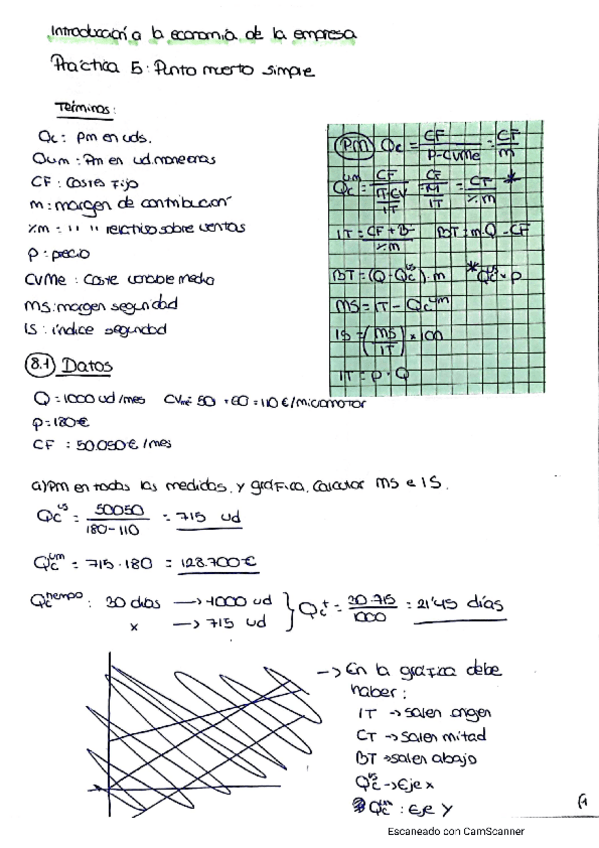 Introducción a la economía de la empresa
Práctica 5: Punto muerto simple
Términos:
Qc: Pm en uds.
Qum: Pm en ud. monetarias
CF: Costes Fijo
m: margen de contribución
%m = " " relativo sobre ventas
P: precio
CVMe: Coste variable medio
MS: margen seguridad
IS: índice seguridad
PM Qc = CF / P-CVMe = CF / m
Qc^um = CF / (IT-CV / IT) = CF / (M / IT) = CF / %m *
IT = CF + B / %m BT = m·Q - CF
BT = (Q - Qc^us)·m *Qc^us × P
MS = IT - Qc^um
IS = (MS / IT) × 100
IT = P · Q
8.1 Datos
Q = 1000 ud/mes CVMe = 50 + 60 = 110 €/micromotor
P = 180 €
CF = 50.050 €/mes
a) PM en todas las medidas, y gráfica, Calcular MS e IS.
Qc^us = 50050 / 180-110 = 715 ud
Qc^um = 715 · 180 = 128.700 €
Qc^tiempo: 30 días → 1000 ud
x → 715 ud
Qc^t = 30·715 / 1000 = 21'45 días
→ En la gráfica debe
haber:
IT → sale origen
CT → sale mitad
BT → sale abajo
Qc^us → Eje x
Qc^um: Eje Y
Escaneado con CamScanner